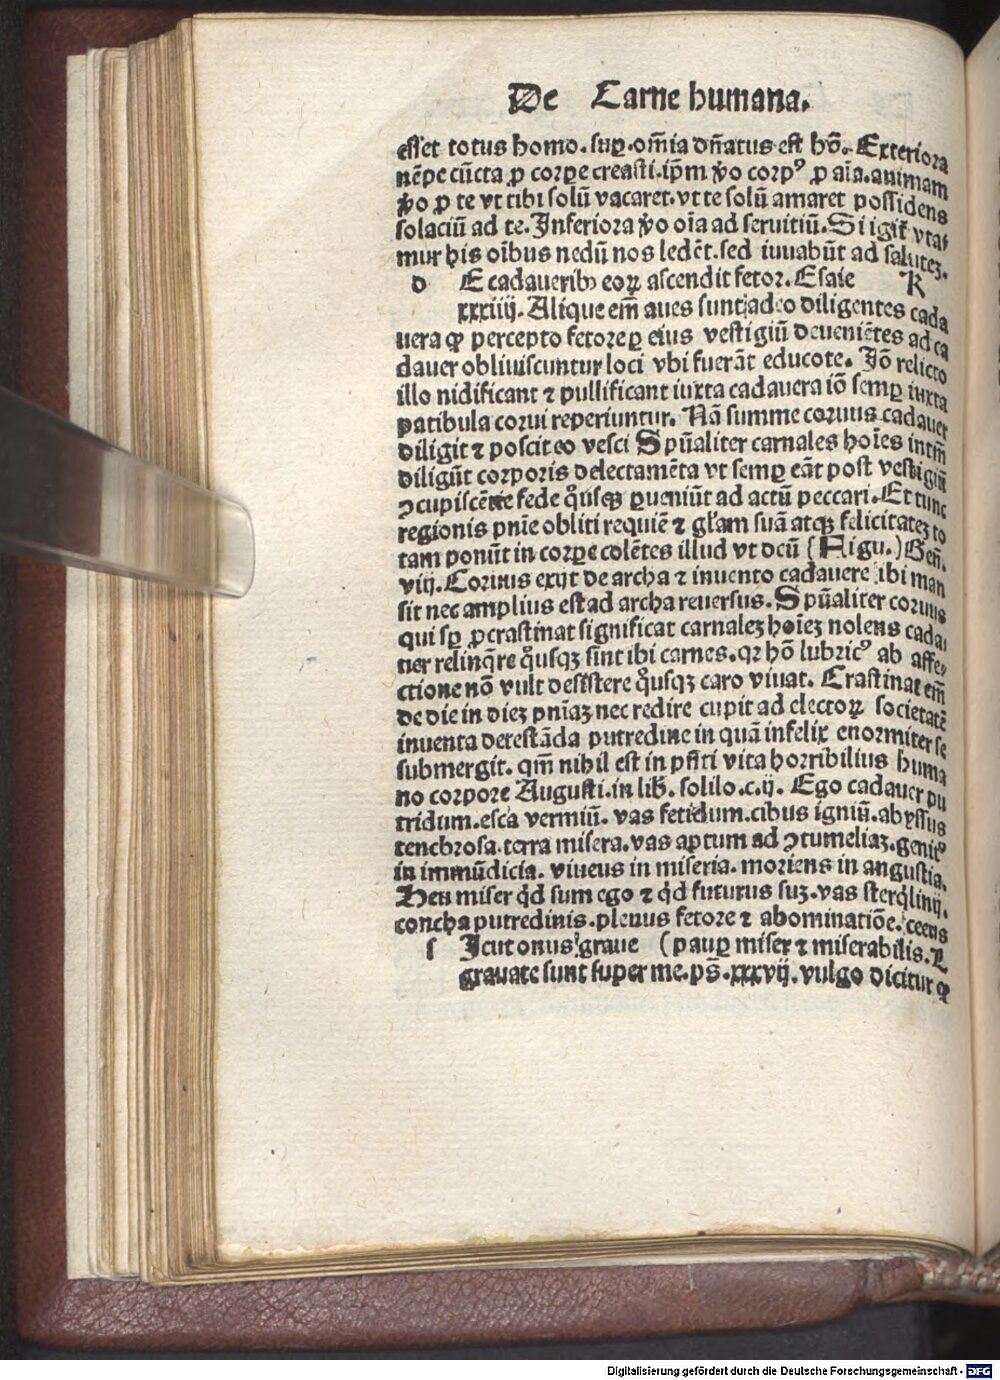 De Carne humana.
esset totus homo. suꝑ. om̄ia dn̄atus est hō. Exteriora
nēpe cūcta ꝓ corꝑe creasti. ip̄m ꝟo corpꝰ ꝓ aīa. animam
ꝟo ꝓ te vt tibi solū vacaret. vt te solū amaret possidens
solaciū ad te. Inferiora ꝟo oīa ad seruitiū. Si igit̄ vta/
mur his oībus nedū nos ledēt. sed iuuabūt ad salutez.
d E cadaueribꝰ eoꝝ ascendit fetor. Esaie K
xxxiiij. Alique em̄ aues sunt adeo diligentes cada
uera ꝙ percepto fetore ꝑ eius vestigiū deueniētes ad ca
dauer obliuiscuntur loci vbi fuerāt educote. Jō relicto
illo nidificant ⁊ pullificant iuxta cadauera iō semꝑ iuxta
patibula corui reperiuntur. Nā summe coruus cadauer
diligit ⁊ poscit eo vesci Spūaliter carnales hoīes intm̄
diligūt corporis delectamēta vt semꝑ eāt post vestigiū
ꝯcupiscētie fede qͦusqꝫ ꝑueniūt ad actū peccari. Et tunc
regionis pn̄ie obliti requiē ⁊ gl̄am suā atqꝫ felicitatez to
tam ponūt in corꝑe colētes illud vt deū (Figu.) Gen̄.
viij. Coruus exijt de archa ⁊ inuento cadauere ibi man
sit nec amplius est ad archa reuersus. Spūaliter coruus
qui sꝑ ꝓcrastinat significat carnalez hoīez nolens cada/
uer relinq̄re qͦusqꝫ sint ibi carnes. qꝛ hō lubricꝰ ab affe/
ctione nō vult desistere qͦusqꝫ caro viuat. Crastinat em̄
de die in diez pn̄iaz nec redire cupit ad electoꝝ societatē
inuenta detestāda putredine in quā infelix enormiter se
submergit. qm̄ nihil est in pn̄ti vita horribilius huma
no corpore Augusti. in lib̄. solilo. c. ij. Ego cadauer pu
tridum. esca vermiū. vas fetidum. cibus igniū. abyssus
tenebrosa. terra misera. vas aptum ad ꝯtumeliaz. genitꝰ
in immūdicia. viuens in miseria. moriens in angustia.
Heu miser qͥd sum ego ⁊ qͥd futurus suꝫ. vas sterqͥlinij.
concha putredinis. plenus fetore ⁊ abominatiōe. cecus
s Icut onus graue (pauꝑ miser ⁊ miserabilis. L
grauate sunt super me. ps̄. xxxvij. vulgo dicitur ꝙ
Digitalisierung gefördert durch die Deutsche Forschungsgemeinschaft - DFG